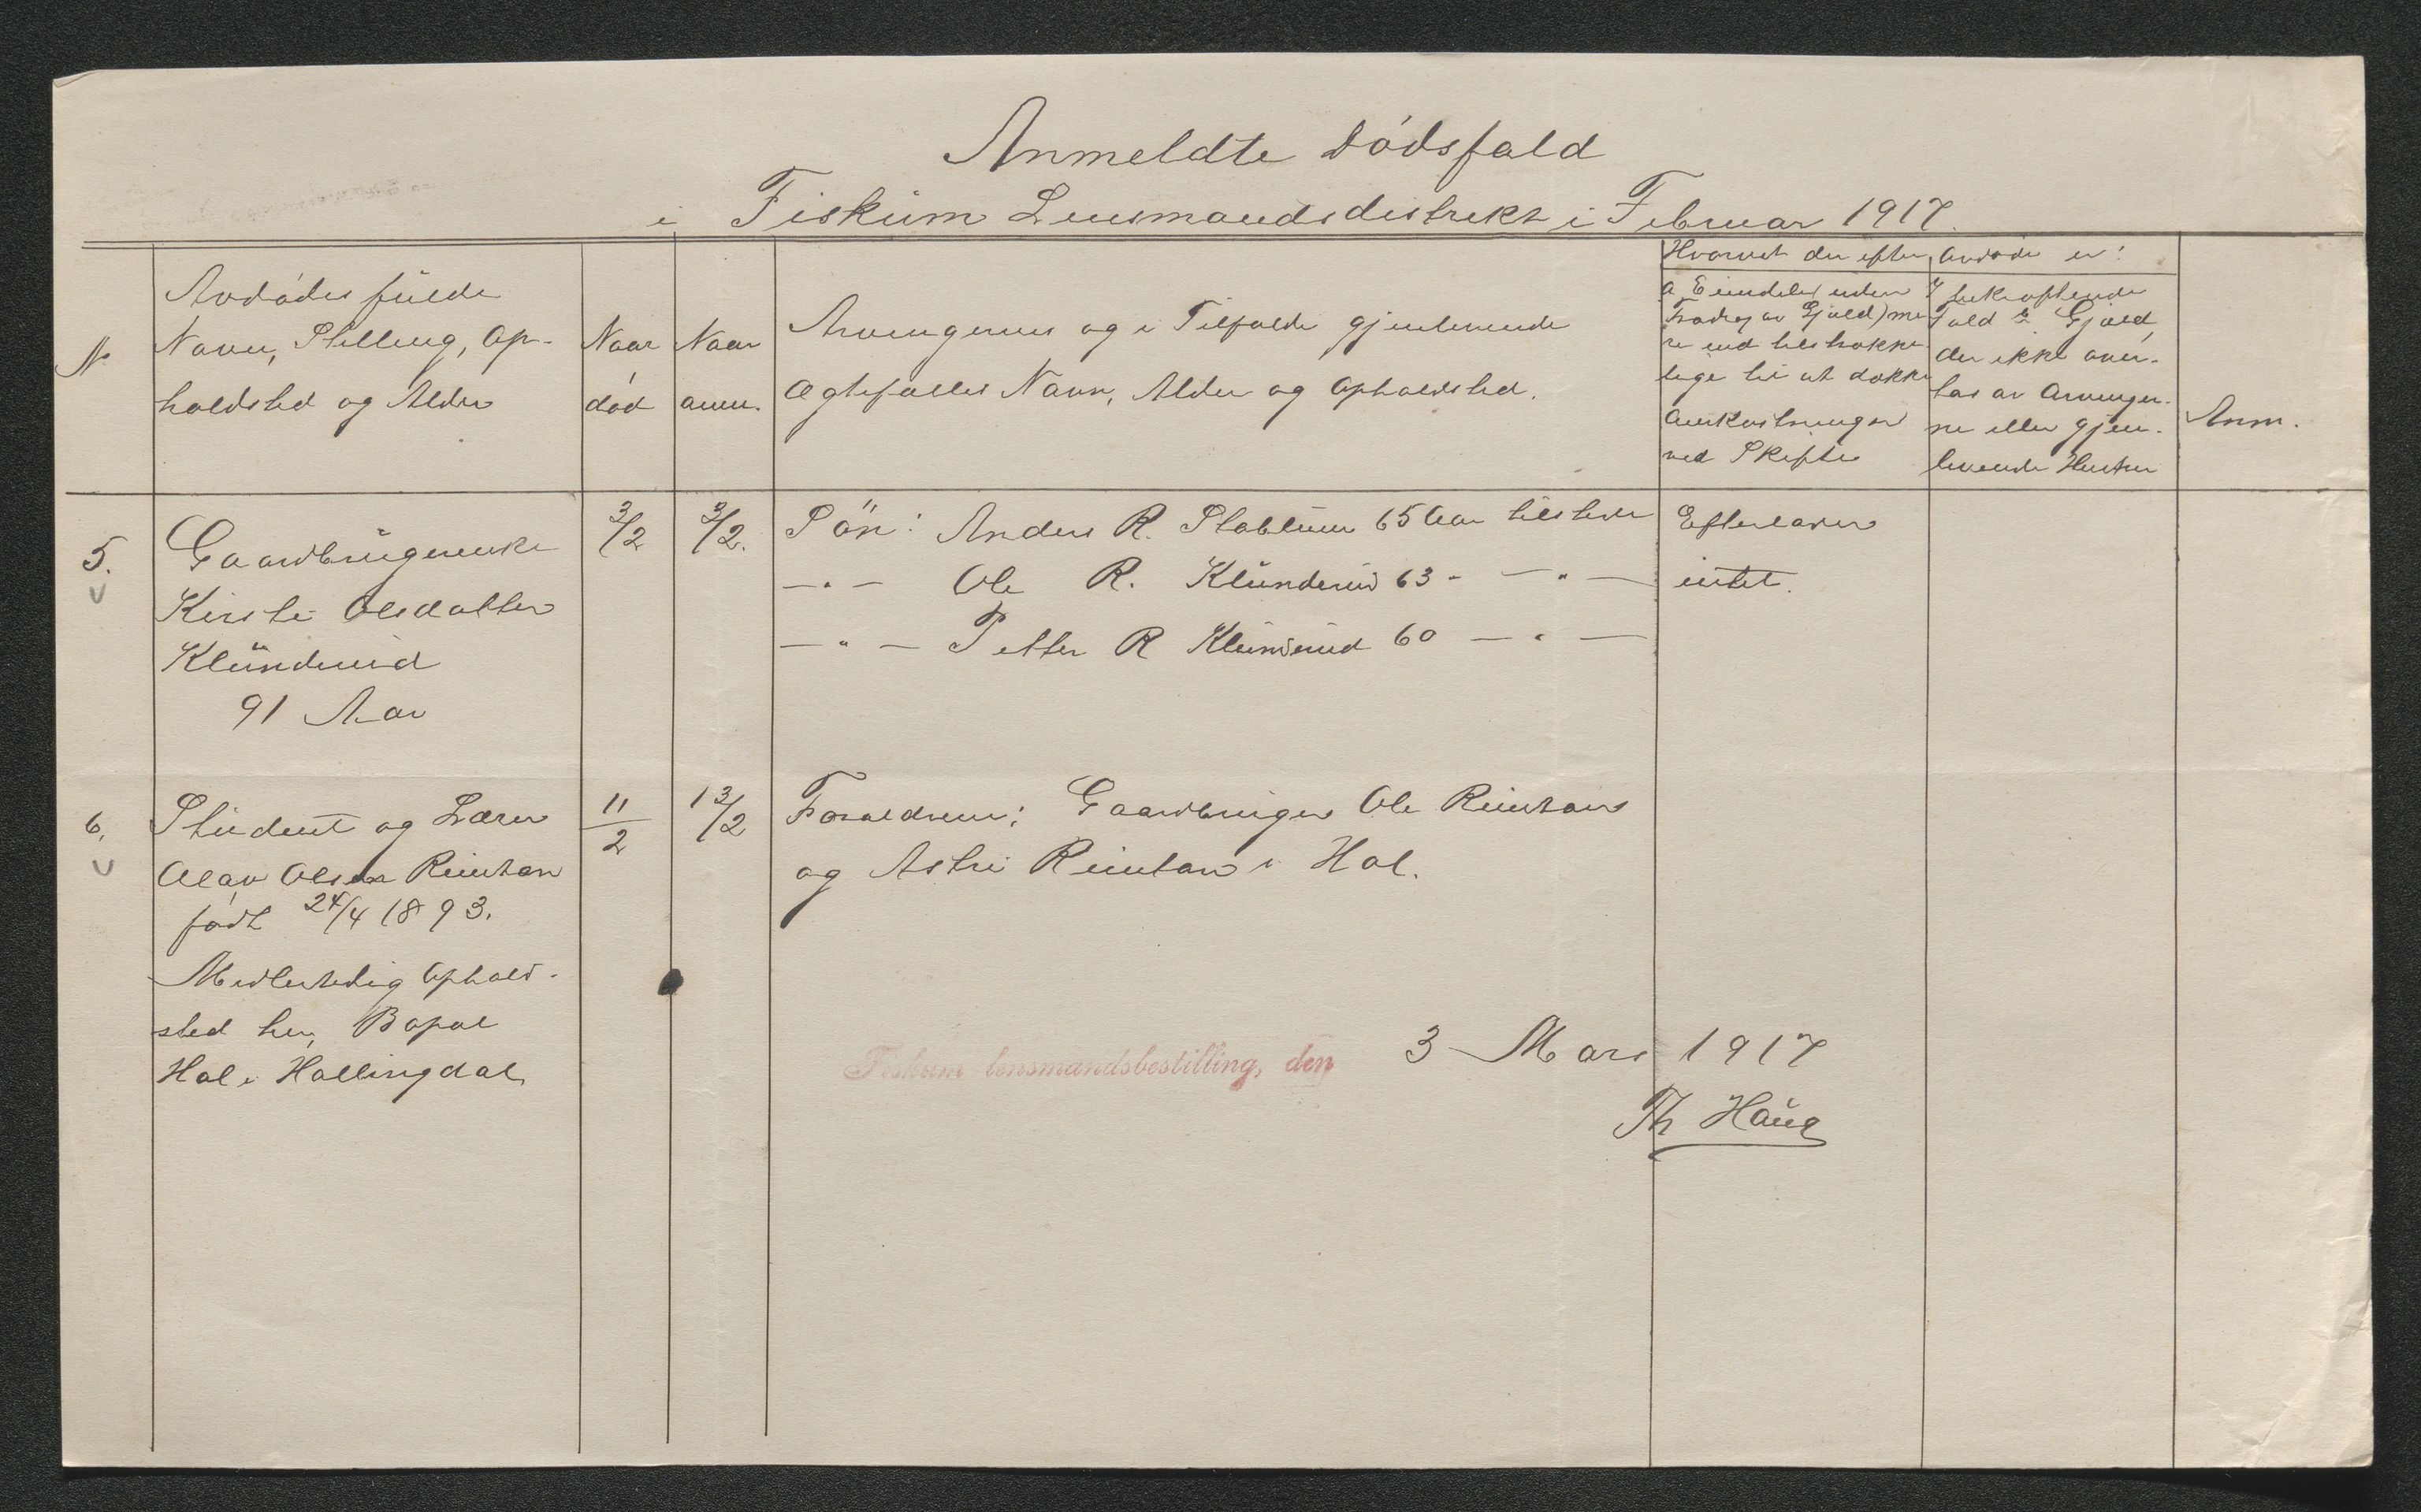 Anmeldte Dödsfald
i Fiskum Lensmandsdistrikt i Februar 1917.
No
Avdödes fulde
Navn, Stilling, Op-
holdsted og Alder
Naar
död
Naar
anm.
Arvingernes og i Tilfælde gjenlevende
Ægtefælles Navn, Alder og Opholdsted.
Hvorvet der efter Avdöde er:
a Eiendele (uden
Fradrag av Gjæld) me
re end tilstrække-
lige til at dække
Omkostninger
ved Skifte
I bekræftende
Fald Gjæld,
der ikke over-
tas av Arvinger-
ne eller gjen-
levende Hustru
Anm.
5.
Gaardbrugerenke
Kirsti Olsdatter
Klunderud
91 Aar
3/2
3/2.
Sön: Anders R. Stablum 65 Aar tilstede
—"— Ole R. Klunderud 63 - —"—
—"— Petter R Klunderud 60 —"—
Efterlader
intet.
6.
Student og Lærer
Olav Olsen Reintan
født 24/4 1893.
Midlertidig Ophold-
sted her, Bopæl
Hol i Hallingdal
11/2
13/2
Forældrene: Gaardbruger Ole Reintan
og Astri Reintan i Hol.
Fiskum lensmandsbestilling, den 3 Mars 1917
Th Haug